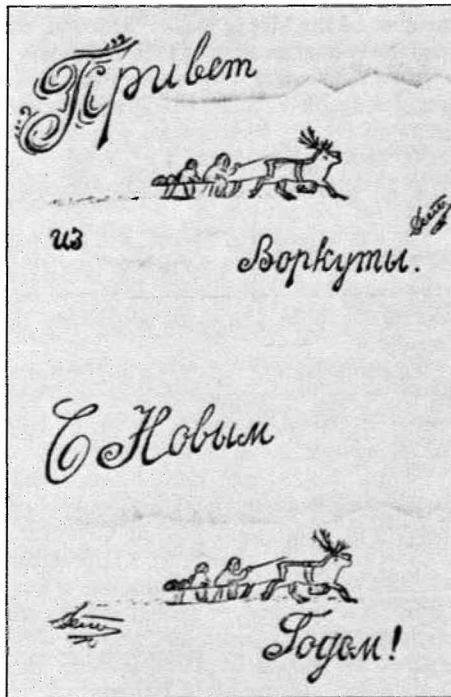 Привет
из
Воркуты.
С Новым
Годом!